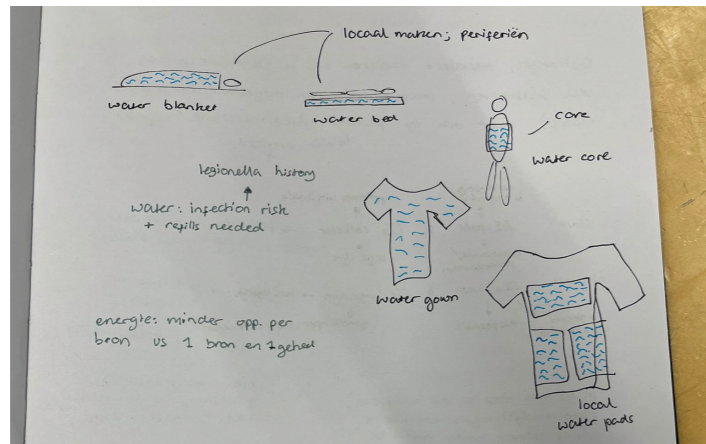 locaal maken; periferiën
water blanket
water bed
core
water core
legionella history
water: infection risk
+ refills needed
water gown
energie: minder opp. per
bron vs 1 bron en 1 geheel
local
water pads